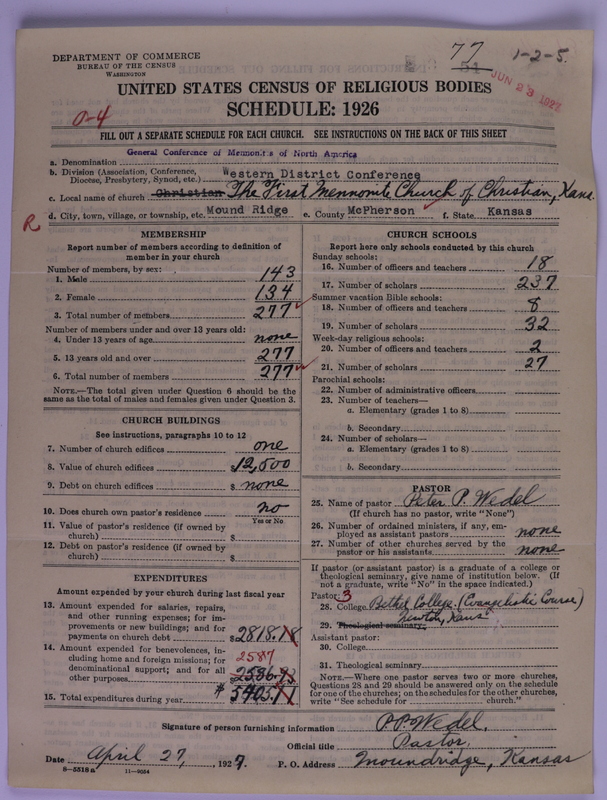 77
51
1-2-5.
JUN 23 1927
DEPARTMENT OF COMMERCE
BUREAU OF THE CENSUS
WASHINGTON
UNITED STATES CENSUS OF RELIGIOUS BODIES
SCHEDULE: 1926
0-4
FILL OUT A SEPARATE SCHEDULE FOR EACH CHURCH. SEE INSTRUCTIONS ON THE BACK OF THIS SHEET
a. Denomination General Conference of Mennonites of North America
b. Division (Association, Conference, Diocese, Presbytery, Synod, etc.) Western District Conference
c. Local name of church Christian The First Mennonite Church of Christian, Kans.
R
d. City, town, village, or township, etc. Mound Ridge e. County McPherson f. State Kansas
MEMBERSHIP
Report number of members according to definition of
member in your church
Number of members, by sex:
1. Male 143
2. Female 134
3. Total number of members 277
Number of members under and over 13 years old:
4. Under 13 years of age none
5. 13 years old and over 277
6. Total number of members 277
NOTE.—The total given under Question 6 should be
the same as the total of males and females given under Question 3.
CHURCH BUILDINGS
See instructions, paragraphs 10 to 12
7. Number of church edifices one
8. Value of church edifices $12,500
9. Debt on church edifices $ none
10. Does church own pastor's residence no
Yes or No
11. Value of pastor's residence (if owned by
church) $
12. Debt on pastor's residence (if owned by
church) $
EXPENDITURES
Amount expended by your church during last fiscal year
13. Amount expended for salaries, repairs,
and other running expenses; for im-
provements or new buildings; and for
payments on church debt $2818.18
14. Amount expended for benevolences, in-
cluding home and foreign missions; for 2587
denominational support; and for all
other purposes 2586.93
15. Total expenditures during year $5405.11
CHURCH SCHOOLS
Report here only schools conducted by this church
Sunday schools:
16. Number of officers and teachers 18
17. Number of scholars 237
Summer vacation Bible schools:
18. Number of officers and teachers 8
19. Number of scholars 32
Week-day religious schools:
20. Number of officers and teachers 2
21. Number of scholars 27
Parochial schools:
22. Number of administrative officers
23. Number of teachers—
a. Elementary (grades 1 to 8)
b. Secondary
24. Number of scholars—
a. Elementary (grades 1 to 8)
b. Secondary
PASTOR
25. Name of pastor Peter P. Wedel
(If church has no pastor, write "None")
26. Number of ordained ministers, if any, em-
ployed as assistant pastors none
27. Number of other churches served by the
pastor or his assistants none
If pastor (or assistant pastor) is a graduate of a college or
theological seminary, give name of institution below. (If
not a graduate, write "No" in the space indicated.)
Pastor: 3
28. College Bethel College. (Evangelistic Course)
29. Theological seminary Newton, Kans
Assistant pastor:
30. College
31. Theological seminary
NOTE.—Where one pastor serves two or more churches,
Questions 28 and 29 should be answered only on the schedule
for one of the churches; on the schedules for the other churches,
write "See schedule for church."
Signature of person furnishing information P.P. Wedel.
Official title Pastor.
Date April 27, 1927. P. O. Address Moundridge, Kansas
8—5518a 11—9054